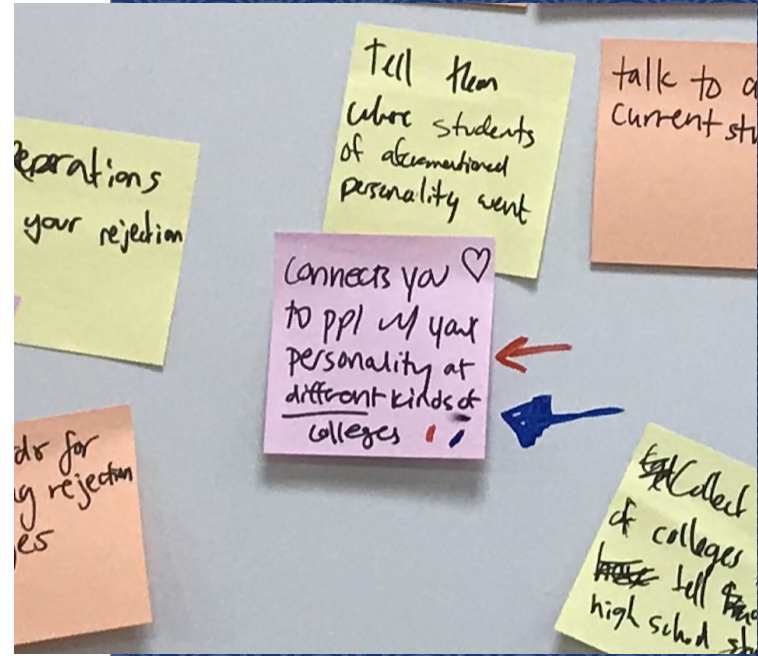 Tell them
where students
of aforementioned
personality went
talk to a
current stu
eparations
your rejection
Connects you ♡
to ppl w/ your
personality at
different kinds of
colleges
dr for
g rejection
es
Collect
of colleges
tell
high school st